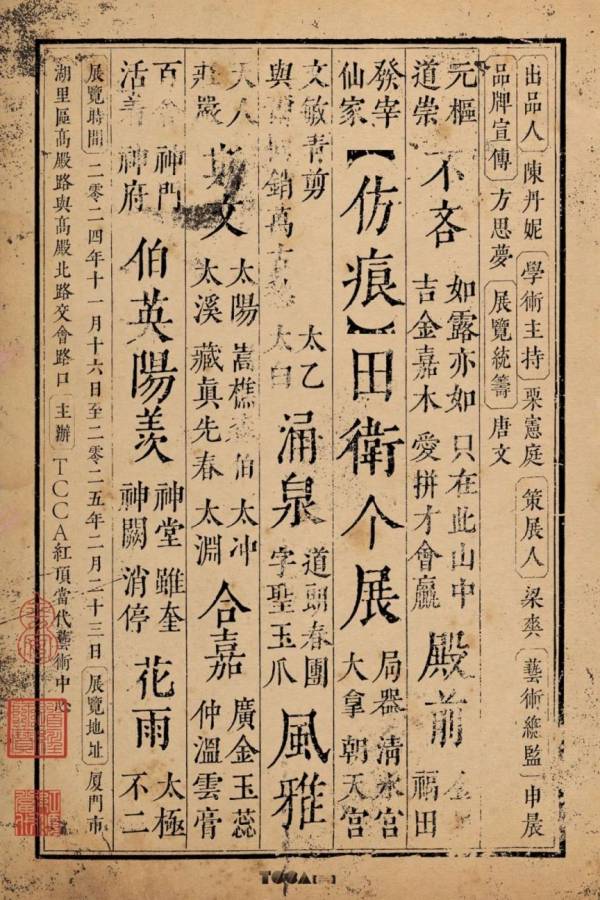 出品人 陳丹妮 學術主持 栗憲庭 策展人 梁爽 藝術總監 申晨
品牌宣傳 方思夢 展覽統籌 唐文
元樞
道崇
不吝
如露亦如 只在此山中
吉金嘉木 愛拼才會贏
殿前
福田
發宰
仙家
【仿痕】田衛个展
局器 清水宮
大拿 朝天宮
文敏青剪
與銷萬古
太乙
太白
涌泉
道朝春團
字聖玉爪
風雅
大人
莊嚴
文
太陽 嵩樵 伯 太冲
太溪 藏真先春 太淵
合嘉
廣金玉蕊
仲溫雲膏
百 神門
活著 神府
伯英陽羨
神堂 雖奎
神闕 消停
花雨
太極
不二
展覽時間 二零二四年十一月十六日至二零二五年二月二十三日 展覽地址 厦門市
湖里區高殿路與高殿北路交會路口 主辦 TCCA紅頂當代藝術中心
TCCA